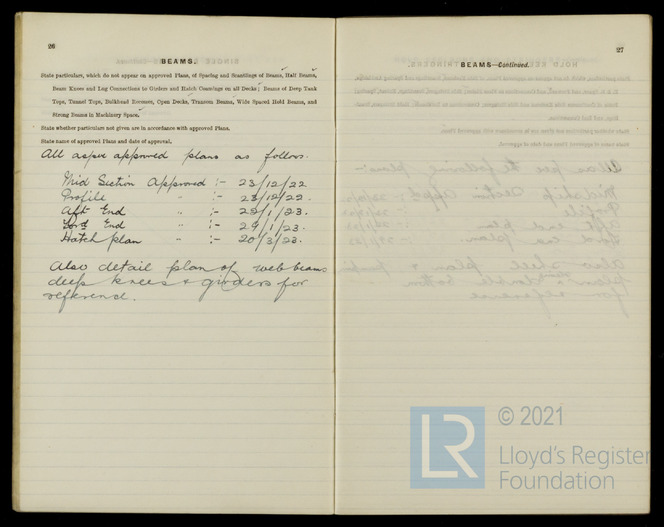 26
BEAMS.
State particulars, which do not appear on approved Plans, of Spacing and Scantlings of Beams, Half Beams,
Beam Knees and Lug Connections to Girders and Hatch Coamings on all Decks; Beams of Deep Tank
Tops, Tunnel Tops, Bulkhead Recesses, Open Decks, Transom Beams, Wide Spaced Hold Beams, and
Strong Beams in Machinery Space.
State whether particulars not given are in accordance with approved Plans.
State name of approved Plans and date of approval.
All as per approved plans as follows.
Mid Section Approved :- 23/12/22
Profile " :- 23/12/22.
Aft End " :- 29/1/23.
Ford End " :- 29/1/23.
Hatch plan " :- 20/3/23.
Also detail plan of web beams
deep knees + girders for
reference.
27
BEAMS—Continued.
LR
© 2021
Lloyd's Register
Foundation